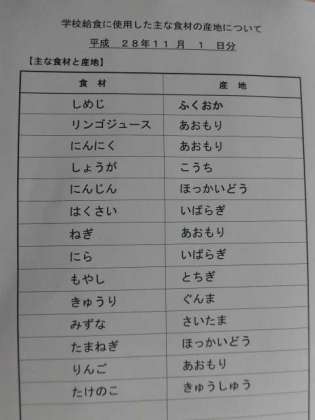 学校給食に使用した主な食材の産地について
平成 28年11月 1 日分
【主な食材と産地】
食 材 産 地
しめじ ふくおか
リンゴジュース あおもり
にんにく あおもり
しょうが こうち
にんじん ほっかいどう
はくさい いばらぎ
ねぎ あおもり
にら いばらぎ
もやし とちぎ
きゅうり ぐんま
みずな さいたま
たまねぎ ほっかいどう
りんご あおもり
たけのこ きゅうしゅう